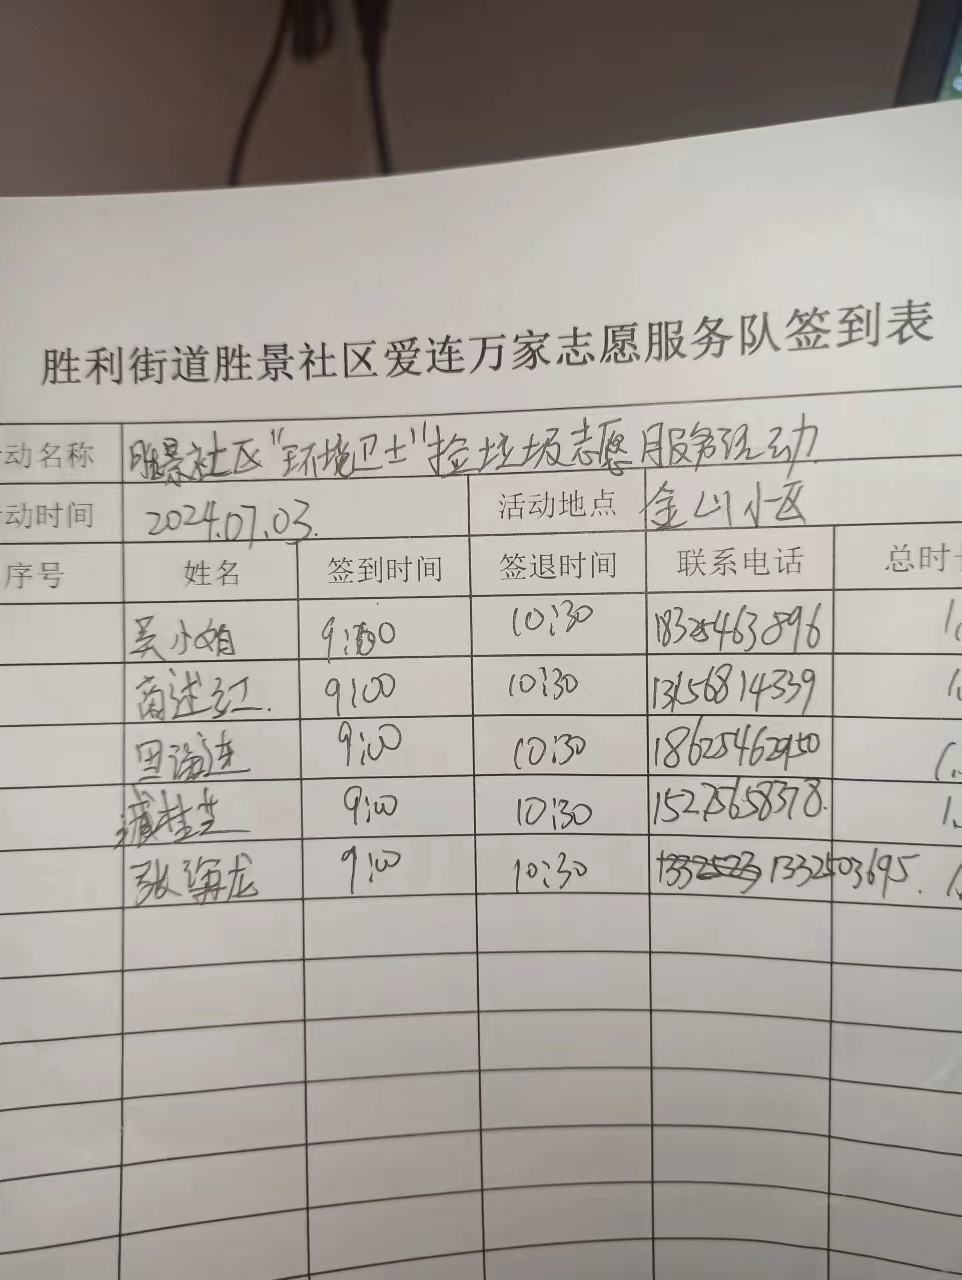 胜利街道胜景社区爱连万家志愿服务队签到表
动名称 胜景社区"环境卫士"捡垃圾志愿服务活动
动时间 2024.07.03. 活动地点 金山小区
序号 姓名 签到时间 签退时间 联系电话 总时
吴小娟 9:00 10:30 18325463896
商述红. 9:00 10:30 13156814339
田海连 9:00 10:30
桂芝 9:00 10:30 15275658378.
张海龙 9:00 10:30 1332503695.